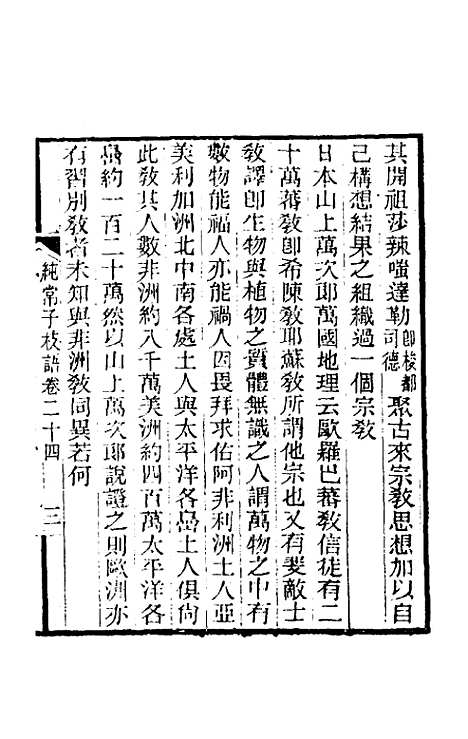 其開祖莎辣嗤達勒即梭都司德聚古來宗敎思想加以自
己構想結果之組織過一個宗敎
日本山上萬次郎萬國地理云歐羅巴蕃敎信徒有二
十萬蕃敎卽希陳敎耶蘇敎所謂他宗也又有斐敵士
敎譯卽生物與植物之實體無識之人謂萬物之中有
數物能福人亦能禍人因畏拜求佑阿非利洲土人亞
美利加洲北中南各處土人與太平洋各島土人俱尙
此敎其人數非洲約八千萬美洲約四百萬太平洋各
島約一百二十萬然以山上萬次郎說證之則歐洲亦
有習別敎者未知與非洲敎同異若何
純常子枝語卷二十四
三